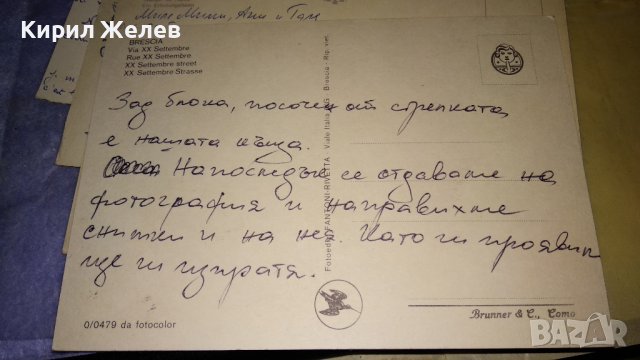 Кирил Желев
Мили Мими, Ани и Тан
BRESCIA
Via XX Settembre
Rue XX Settembre
XX Settembre street
XX Settembre Strasse
Зад блока, посочен от стрелката
е нашата къща.
Напоследък се отдаваме на
фотография и направихме
снимки и на нея. Като ги проявим
ще ги изпратя.
Fotoed. FANTONI-RIVETTA - Viale Italia, - Brescia - Rip. viet.
0/0479 da fotocolor
Brunner & C., Como
BAZAR